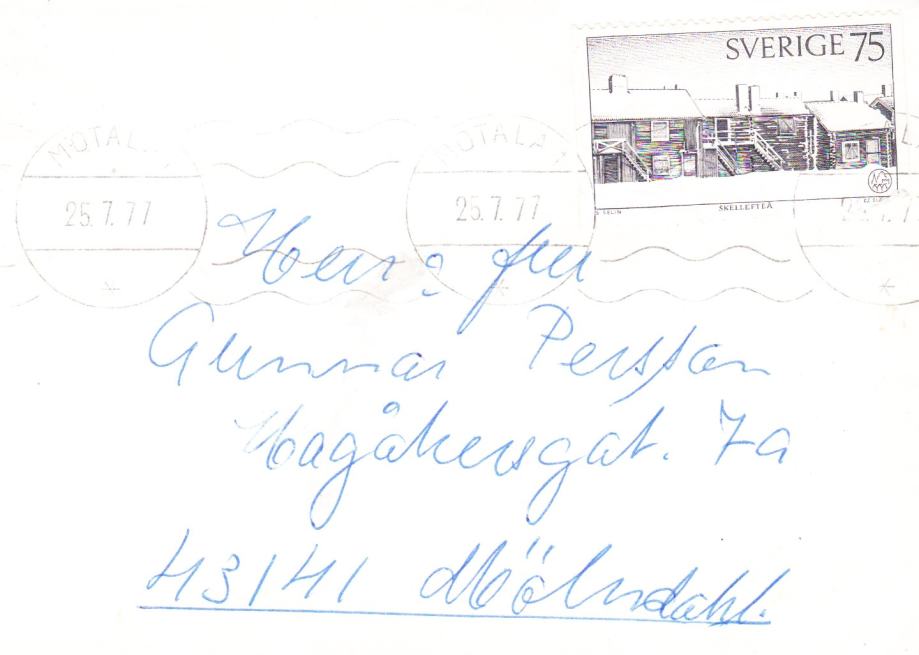 SVERIGE 75
SKELLEFTEÅ
MOTALA 1
25.7.77
MOTALA 1
25.7.77
Herr o fru
Gunnar Persson
Hagåkersgat. 7a
43141 Mölndahl.